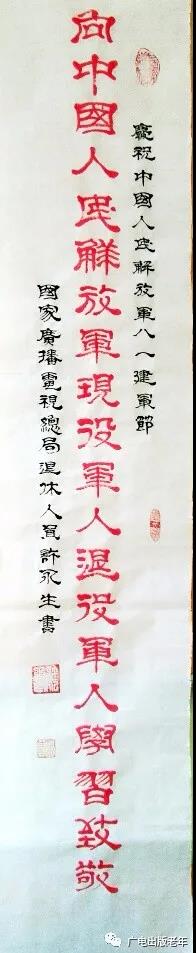 慶祝中國人民解放軍八一建軍節
向中國人民解放軍現役軍人退役軍人學習致敬
國家廣播電視總局退休人員許永生書
广电出版老年